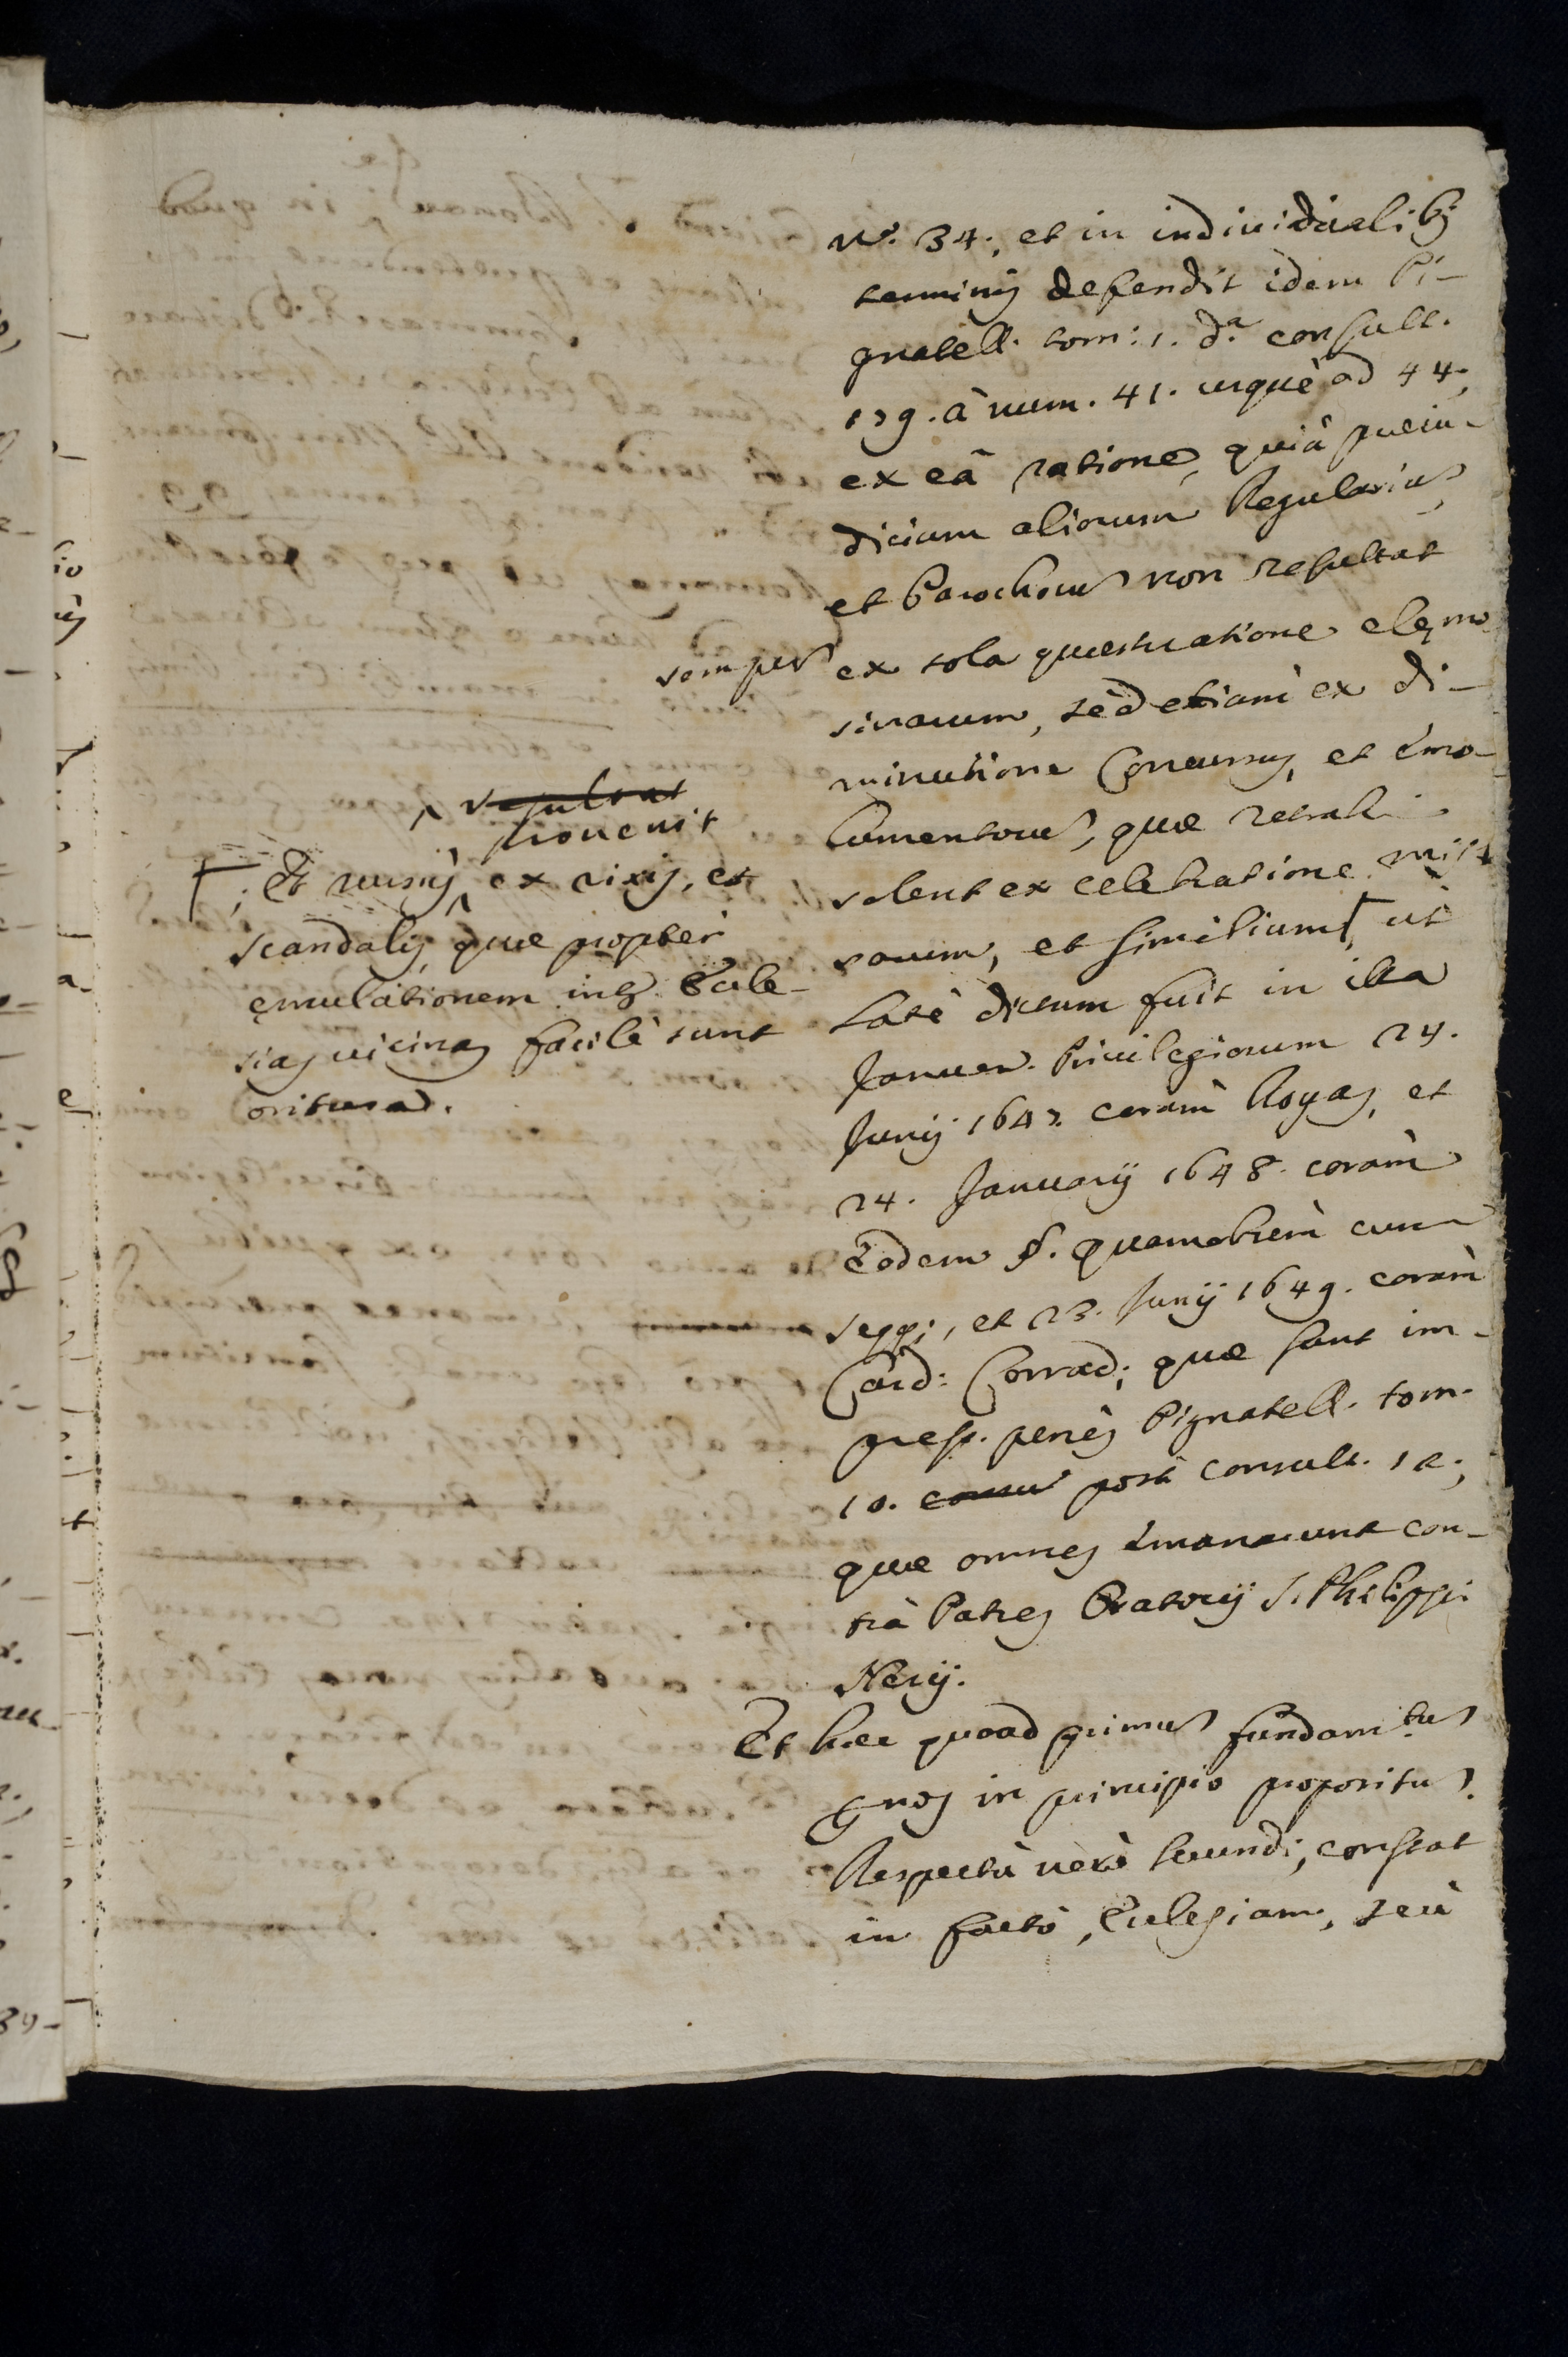 n.º 34., et in individualib;
terminis defendit idem Pi-
gnatell. tom: 1. d.ª consult.
179. à num. 41. usquè ad 44.,
ex eâ ratione, quià preiu-
dicium aliorum Regulariu,
et Parochoru non resultat
semper ex sola questuatione elemo
sinarum, sèd etiam ex di-
minutione Concursus, et emo-
lumentoru, quæ retrahi
solent ex celebratione mis
sarum, et similium Γ, ut
latè dictum fuit in illa
Januen. Privilegiorum 24.
Junij 1647. coram Royas, et
24. Januarij 1648. coràm
Eodem §. quamobrem cum
seqq;, et 23. Junij 1649. coràm
Card: Corrad; quæ sunt im-
press. penès Pignatell. tom.
10. post consult. 12.,
quæ omnes emanarunt con-
trà Patres Oratorij S. Philippi
Nerij.
Et hæc quoad primu fundam.tu
nos in principio propositu.
Respectù verò secundi, constat
in factò, Ecclesiam, seù
^ resultat
provenit
Γ; Et rursus ^ ex rixis, et
scandalis, quæ proptèr
emulationem int. Eccle-
sias vicinas facilè sunt
oritura.